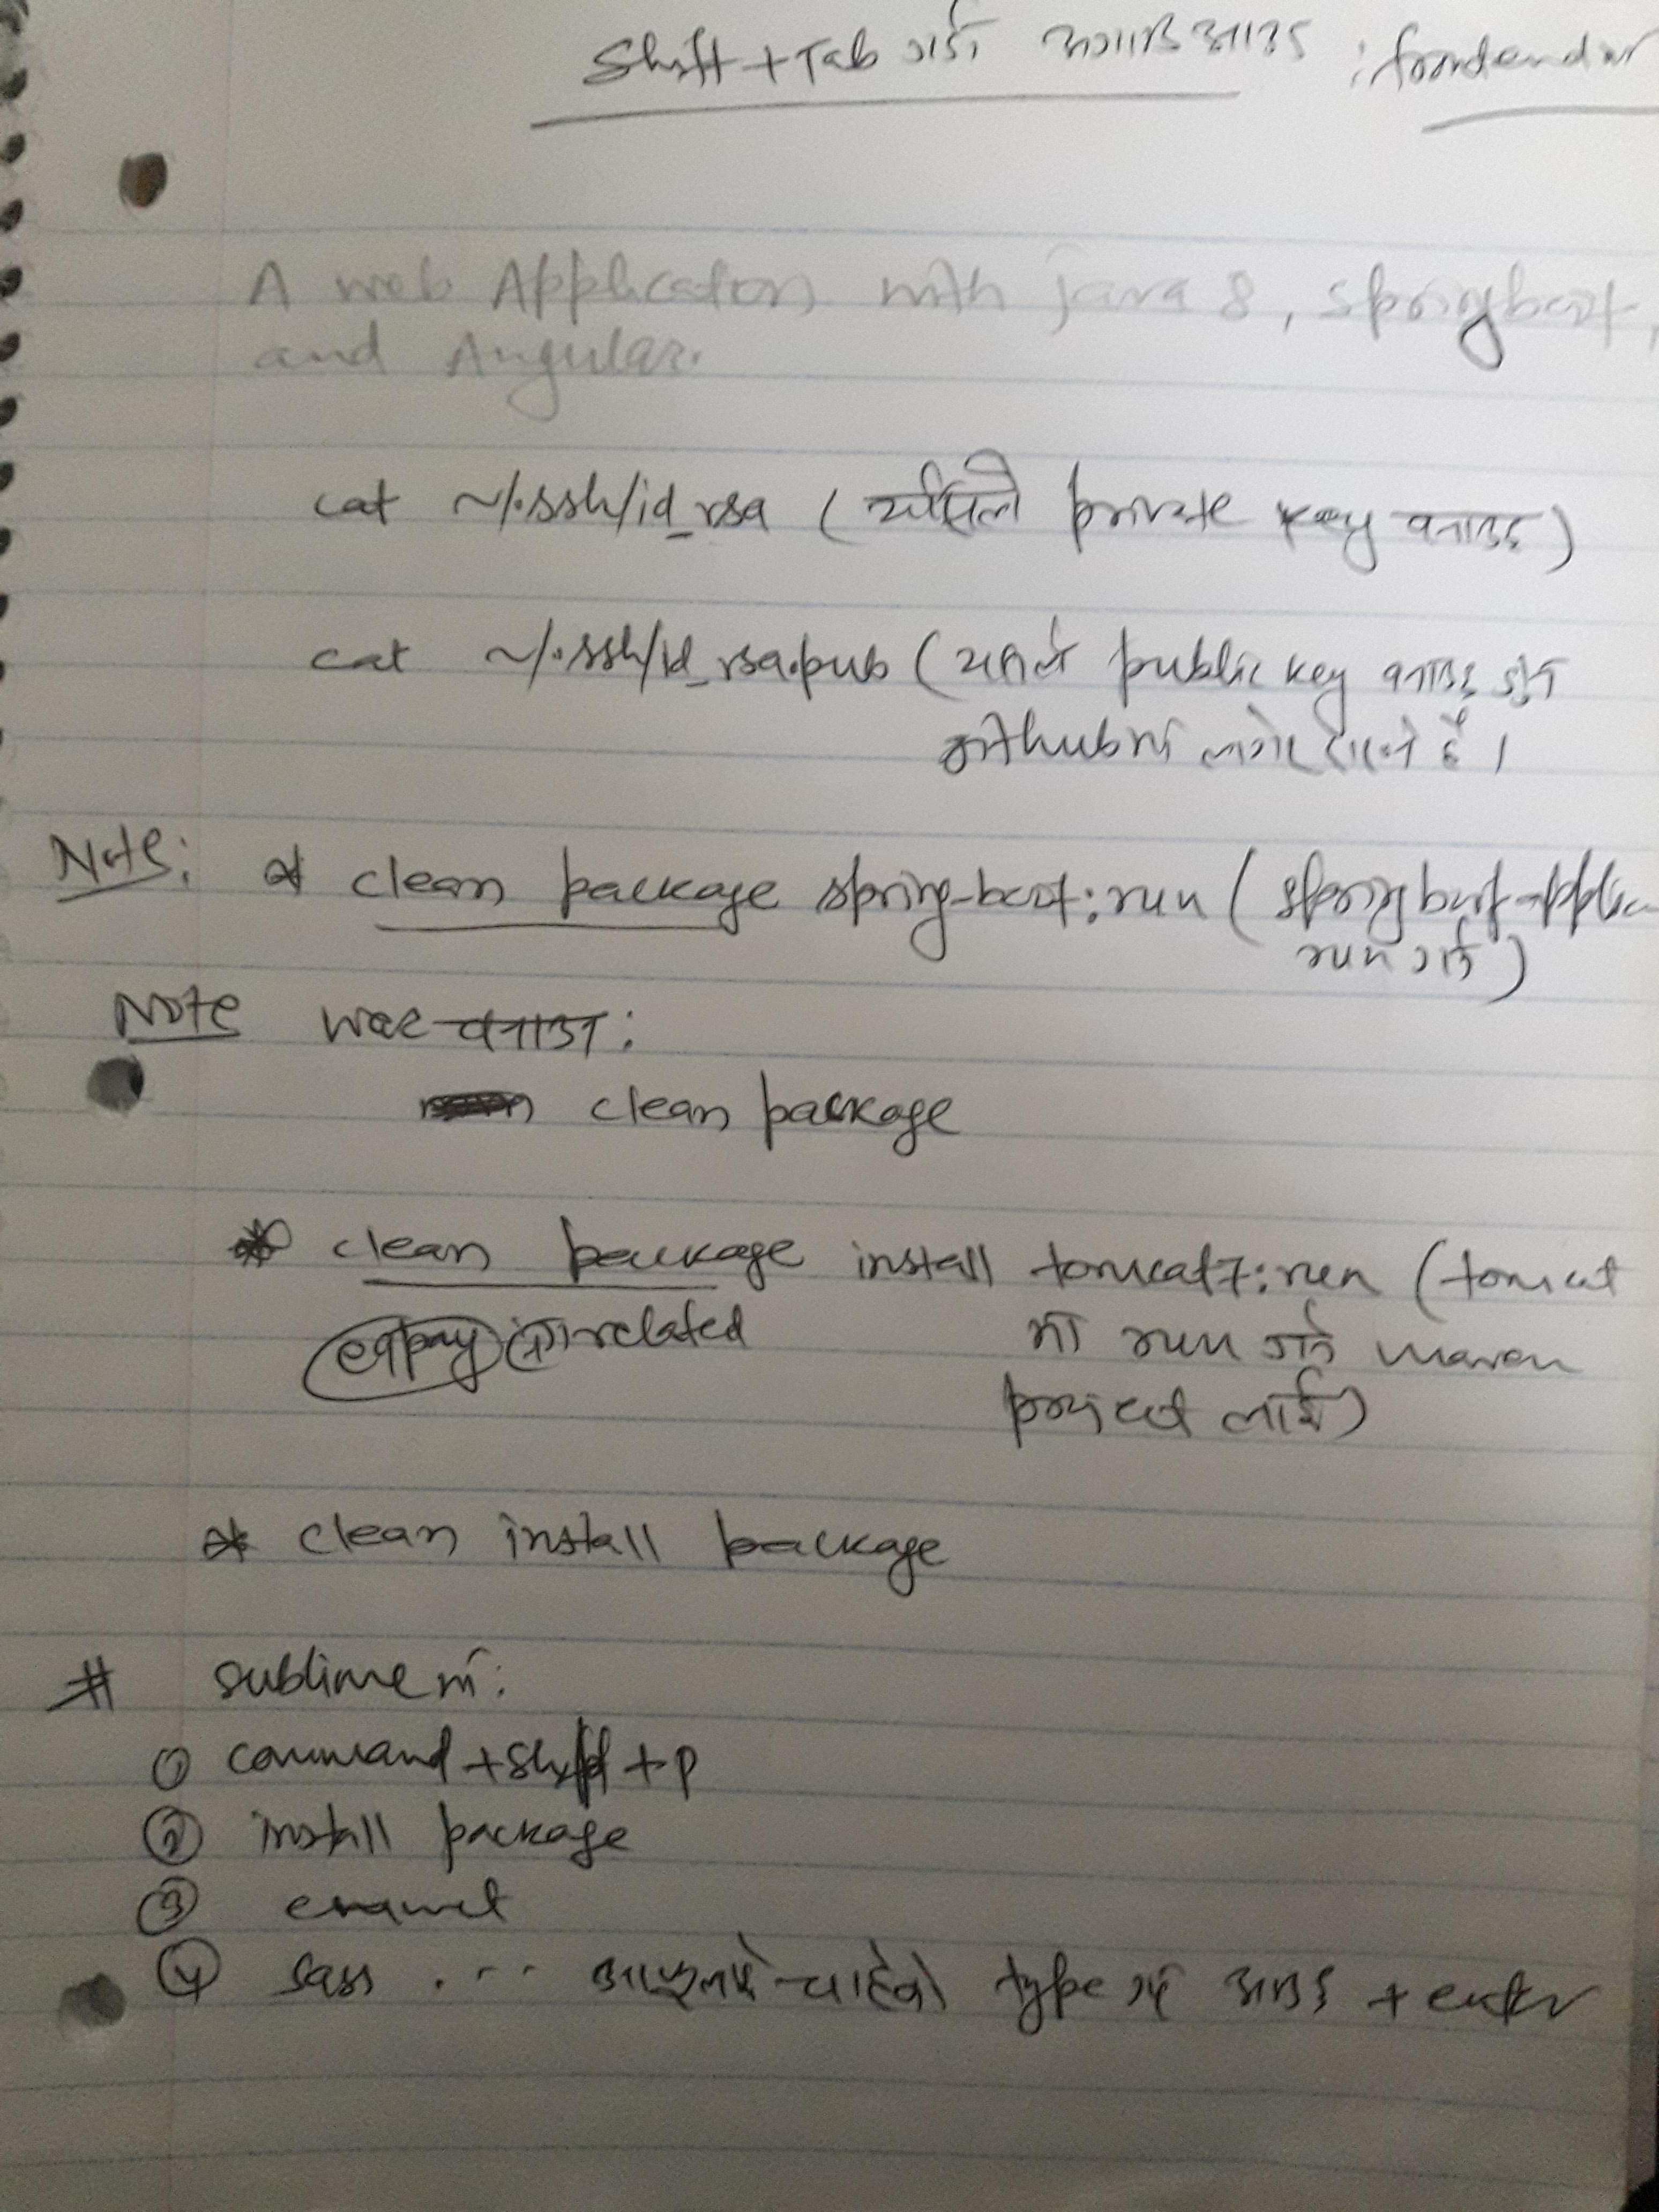 Shift + Tab गर्दा अगाडि आउछ : frontend मा
A web Application with java 8, springboot,
and Angular.
cat ~/.ssh/id_rsa ( यसले private key बनाउछ )
cat ~/.ssh/id_rsa.pub ( यसले public key बनाउछ जुन
githubमा लगेर हाल्ने है ।
Note: * clean package spring-boot:run ( springboot applic
run गर्न )
Note war बनाउन :
clean package
* clean package install tomcat7:run ( tomcat
मा run गर्न maven
project लाई )
related
* clean install package
# sublime मा :
① command + shift + p
② install package
③ emmet
④ sass . . . आफुलाई चाहेको type गर्दै आउछ + enter